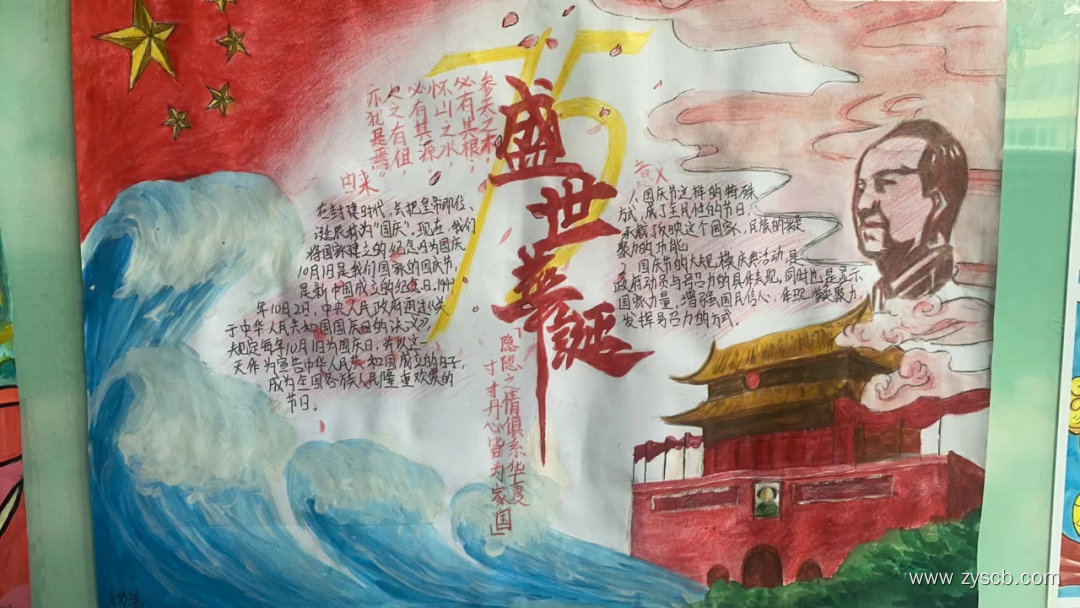 75
盛世華誕
参天之木，
必有其根，
怀山之水，
必有其源。
人之有祖，
亦犹是焉。
由来
在封建时代，会把皇帝即位、
诞辰称为“国庆”。现在，我们
将国家建立的纪念日为国庆
10月1日是我们国家的国庆节，
是新中国成立的纪念日，1949
年10月2日，中央人民政府通过《关
于中华人民共和国国庆日的决议》，
规定每年10月1日为国庆日，并以这一
天作为宣告中华人民共和国成立的日子，
成为全国各族人民隆重欢聚的
节日。
意义
1、国庆节这样的特殊
方式，成了全民性的节日，
承载了反映这个国家、民族的凝
聚力的功能
2、国庆节的大规模庆典活动，是
政府动员与号召力的具体表现，同时也是显示
国家力量，增强国民信心，体现凝聚力，
发挥号召力的方式。
「隐隐之情俱系华夏
寸寸丹心皆为家国」
www.zyscb.com